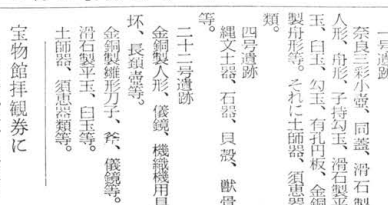 一号遺跡
奈良三彩小壺、同蓋、滑石製
人形、舟形、子持勾玉、滑石製平
玉、臼玉、勾玉、有孔円板、金銅
製舟形等。それに土師器、須恵器
類。
四号遺跡
縄文土器、石器、貝殻、獣骨
等。
二十二号遺跡
金銅製人形、儀鏡、機織機用具
坏、長頚壺等。
金銅製雛形刀子、斧、儀鏡等。
滑石製平玉、臼玉等。
土師器、須恵器類等。
宝物館拝観券に